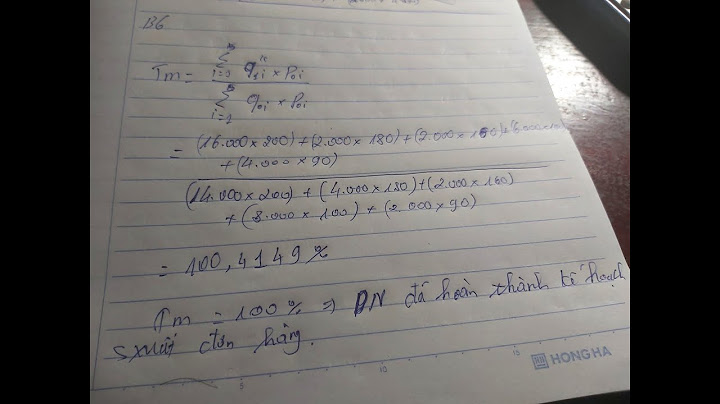 B6
Tm = Σ q¹ᵏi × Poi
Σ qoi × Poi
= (16.000 × 200) + (2.000 × 180) + (2.000 × 160) +
+ (4.000 × 90)
(14.000 × 200) + (4.000 × 180) + (2.000 × 160)
+ (8.000 × 100) + (2.000 × 90)
= 100,4149 %
Tm = 100 % => DN đã hoàn thành kế hoạch
sxuất đơn hàng.
5 10 15
HONG HA